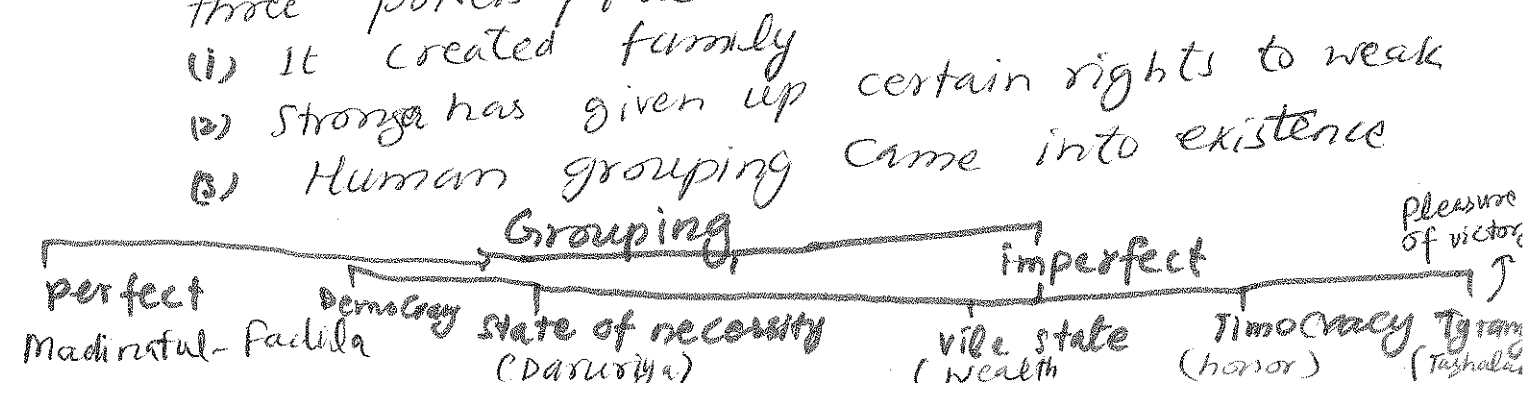 three
(1) It created family
(2) Stronger has given up certain rights to weak
(3) Human grouping came into existence
Grouping
Pleasure
of victory
perfect
imperfect
Madinatul-Fadila
Democracy
State of necessity
(Daruriya)
vile state
(Wealth
Timocracy
(honor)